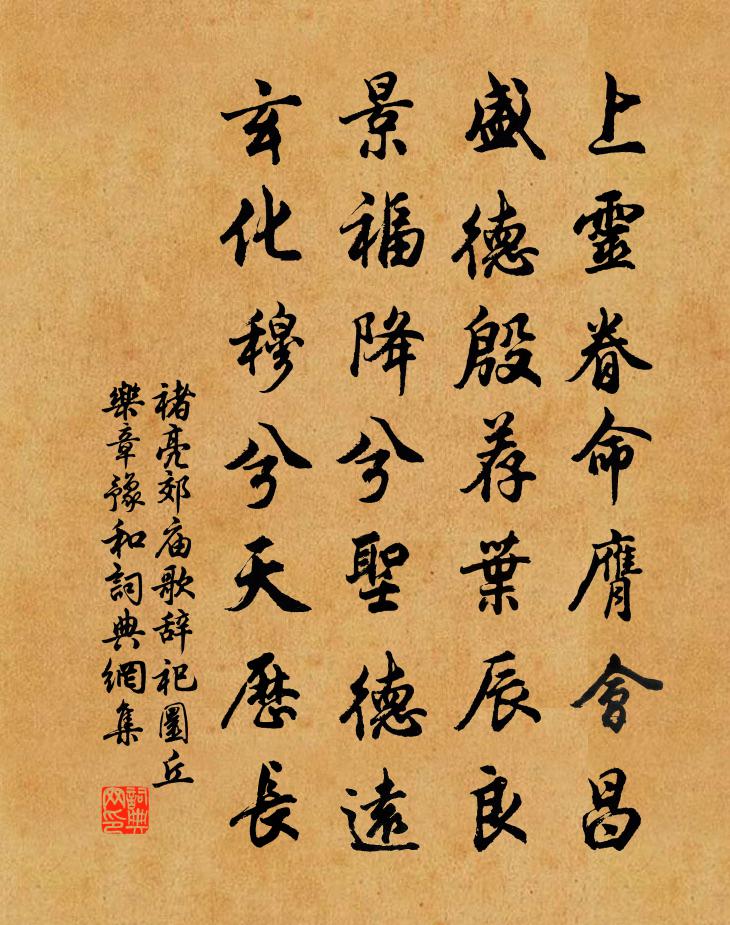 上靈眷命膺會昌
盛德殷荐葉辰良
景福降兮聖德遠
玄化穆兮天歷長
褚亮郊庙歌辞祀圜丘
樂章豫和詞典網集
詞典网印